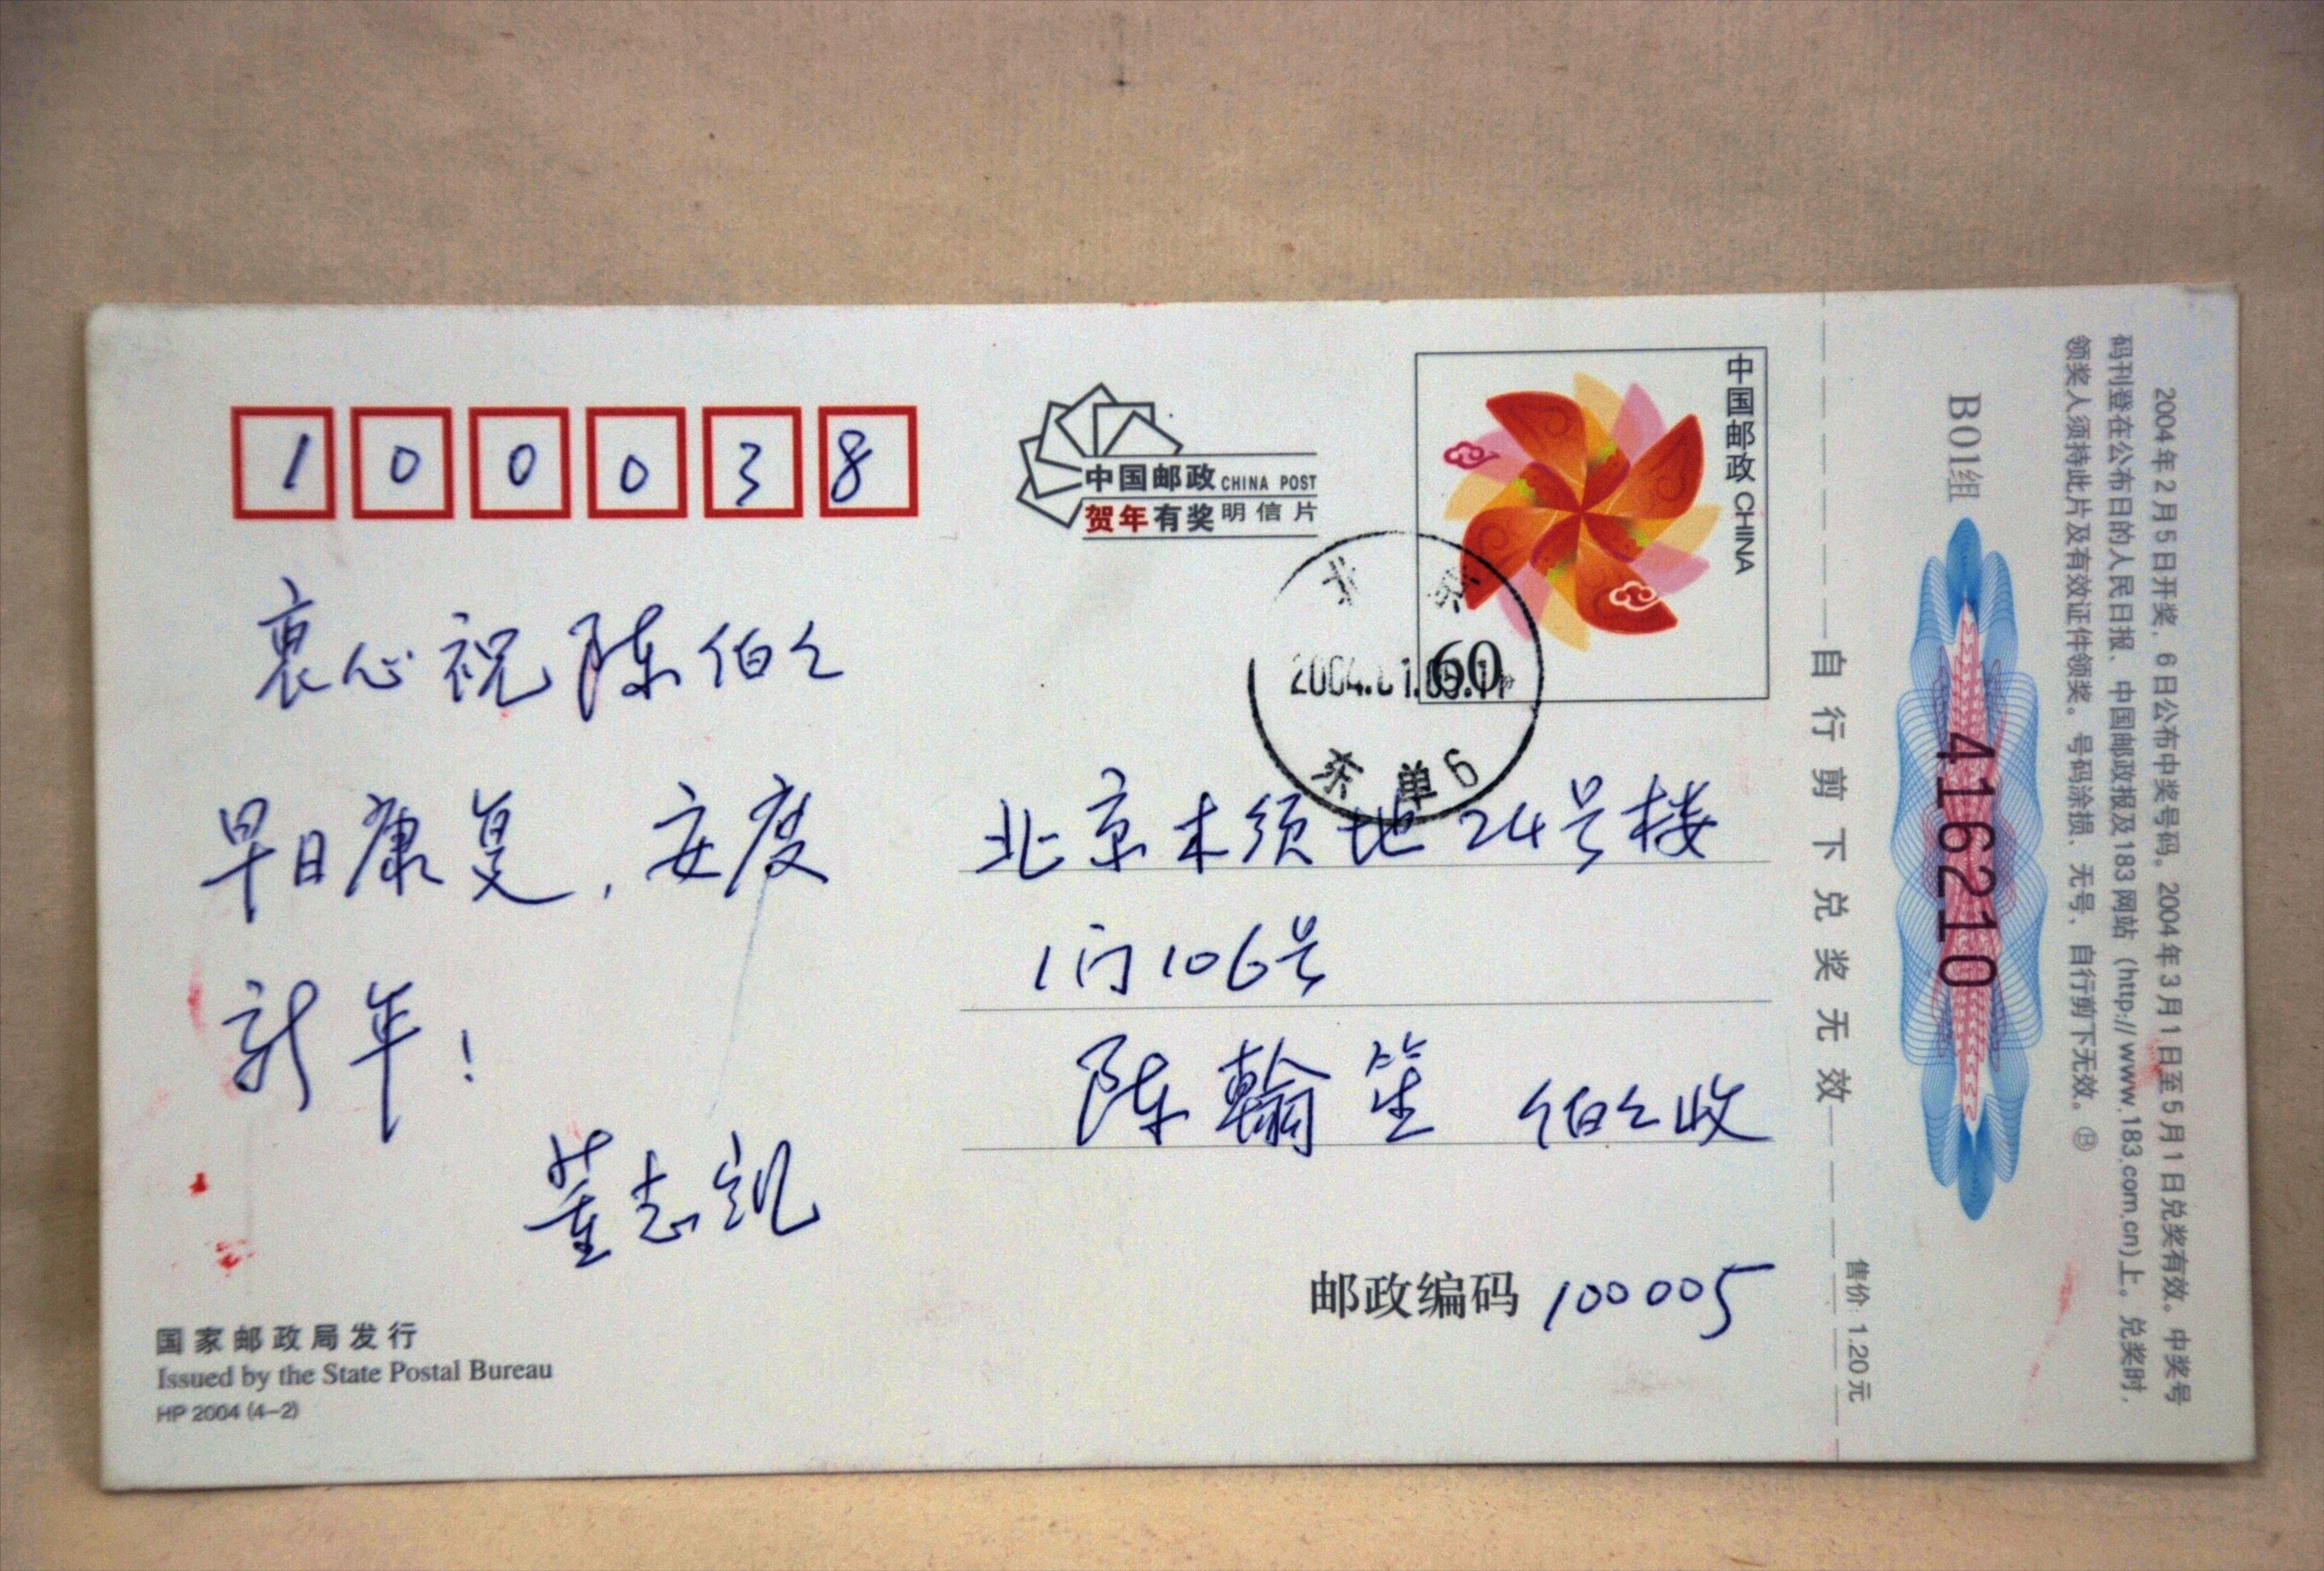 100038
中国邮政 CHINA POST
贺年有奖明信片
中国邮政 CHINA
60
北京
2004.01.
东单6
衷心祝陈伯伯
早日康复，安度
新年！
董志凯
北京木须地24号楼
1门106号
陈翰笙 伯伯收
邮政编码 100005
国家邮政局发行
Issued by the State Postal Bureau
HP 2004 (4-2)
自行剪下兑奖无效
售价: 1.20元
B01组
416210
2004年2月5日开奖，6日公布中奖号码。2004年3月1日至5月1日兑奖有效。中奖号
码刊登在公布日的人民日报、中国邮政报及183网站（http://www.183.com.cn)上。兑奖时，
领奖人须持此片及有效证件领奖。号码涂损、无号、自行剪下无效。Ⓑ